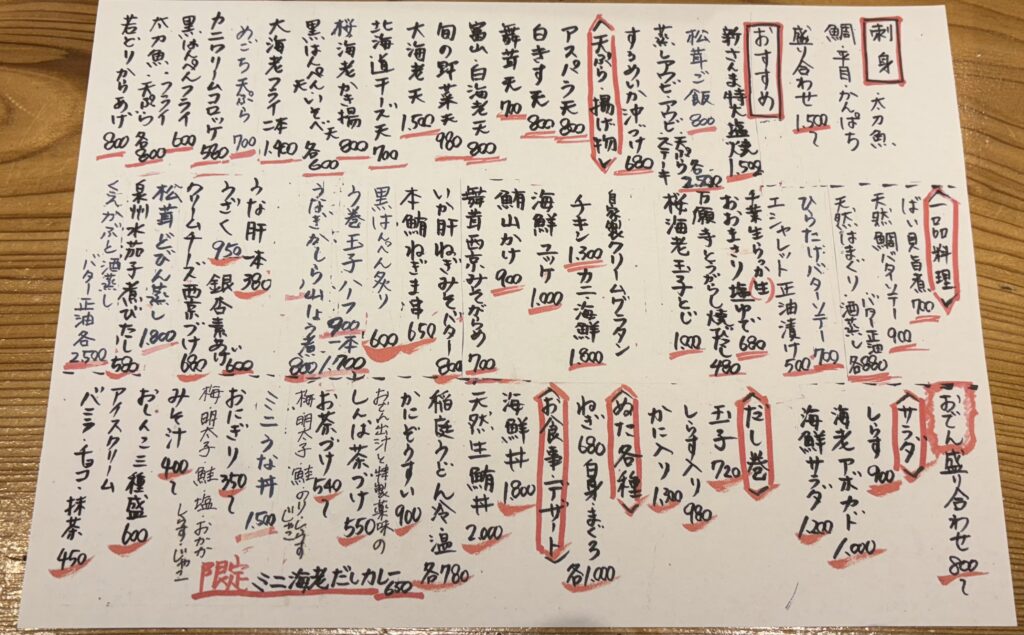 刺身
・太刀魚
鯛・平目・かんぱち
盛り合わせ 1,500〜
おすすめ
新さんま特大塩焼 1,500
松茸ご飯 800
蒸しアワビ・アワビステーキ
天ぷら 各2,500
するめいか沖づけ 680
天ぷら 揚げ物
アスパラ天 800
白きす天 800
舞茸天 700
富山・白海老天 800
旬の野菜天 980
大海老天 1,500
北海道チーズ天 700
桜海老かき揚 800
黒はんぺんいそべ天 各600
大海老フライ二本 1,400
めごち天ぷら 700
カニクリームコロッケ 580
黒はんぺんフライ 600
太刀魚・フライ
天ぷら 各800
若どりからあげ 800
一品料理
ばい貝旨煮 700
天然鯛バターソテー 900
天然はまぐり 酒蒸し
バター正油 各880
ひらたけバターソテー 700
エシャレット正油漬け 500
千葉生らっか(生)
おおまさり塩ゆで 680
万願寺とうがらし焼だし 480
桜海老玉子とじ 1,000
自家製クリームグラタン
チキン 1,300 カニ・海鮮 1,800
海鮮ユッケ 1,000
鮪山かけ 900
舞茸西京みそがらめ 700
いか肝ねぎみそバター 800
本鮪ねぎま串 650
黒はんぺん炙り 600
う巻玉子 ハーフ 900 一本 1,700
うなぎかしら山しょう煮 800
うな肝一本 380
うざく 950 銀杏素あげ 600
クリームチーズ西京づけ 680
松茸どびん蒸し 1,800
泉州水茄子煮びたし 580
バター正油 各2,500
おでん盛り合わせ 800〜
サラダ
しらす 900
海老アボカド 1,000
海鮮サラダ 1,200
だし巻
玉子 720
しらす入り 980
かに入り 1,300
ぬた各種
ねぎ 680 白身・まぐろ 各1,000
お食事 デザート
海鮮丼 1,800
天然生鮪丼 2,000
稲庭うどん冷・温 各780
かにぞうすい 900
おでん出汁と特製薬味の
しんば茶づけ 550
お茶づけ 540〜
梅・明太子・鮭・のり・しらす
じゃこ
ミニうな丼 1,500
おにぎり 350〜
梅・明太子・鮭・塩・おかか
しらす・じゃこ
みそ汁 400〜
おしんこ三種盛 600
アイスクリーム
バニラ・チョコ・抹茶 450
限定 ミニ海老だしカレー 650